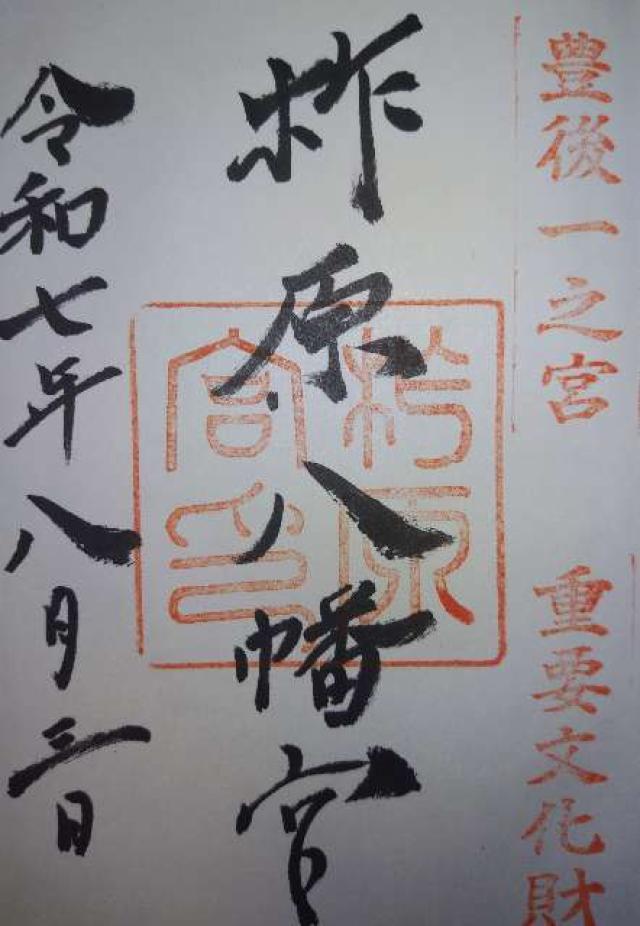 豊後一之宮
重要文化財
柞原八幡宮
柞原
宮印
令和七年八月三日